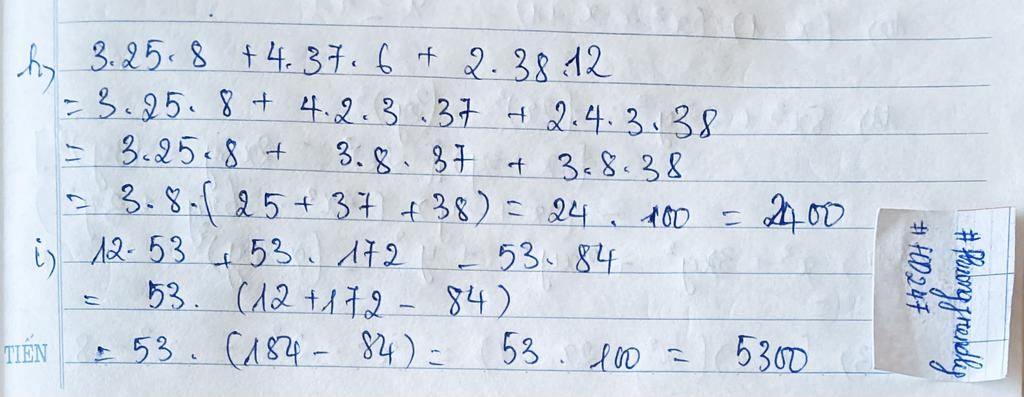 h) 3.25.8 + 4.37.6 + 2.38.12
= 3.25.8 + 4.2.3.37 + 2.4.3.38
= 3.25.8 + 3.8.37 + 3.8.38
= 3.8.(25 + 37 + 38) = 24.100 = 2400
i) 12.53 + 53.172 - 53.84
= 53.(12 + 172 - 84)
TIẾN
= 53.(184 - 84) = 53.100 = 5300